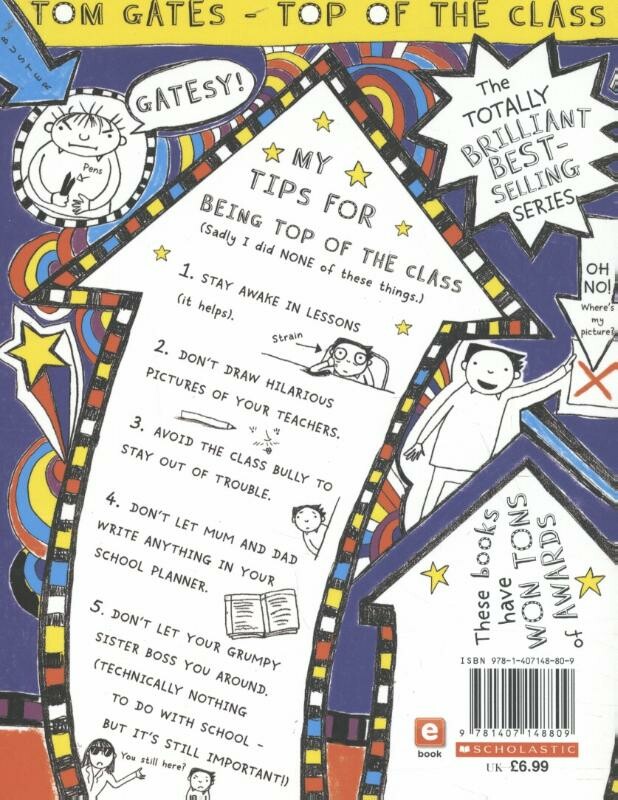 TOM GATES - TOP OF THE CLASS
BUSTER
GATESY!
Pens
The
TOTALLY
BRILLIANT
BEST-
SELLING
SERIES
MY
TIPS FOR
BEING TOP OF THE CLASS
(Sadly I did NONE of these things.)
1. STAY AWAKE IN LESSONS
(it helps).
Strain
2. DON'T DRAW HILARIOUS
PICTURES OF YOUR TEACHERS.
3. AVOID THE CLASS BULLY TO
STAY OUT OF TROUBLE.
4. DON'T LET MUM AND DAD
WRITE ANYTHING IN YOUR
SCHOOL PLANNER.
5. DON'T LET YOUR GRUMPY
SISTER BOSS YOU AROUND.
(TECHNICALLY NOTHING
TO DO WITH SCHOOL -
BUT IT'S STILL IMPORTANT!)
You still here?
OH
NO!
Where's
my
picture?
These books
have
WON TONS
of AWARDS
ISBN 978-1-407148-80-9
9 781407 148809
e
book
SCHOLASTIC
UK £6.99